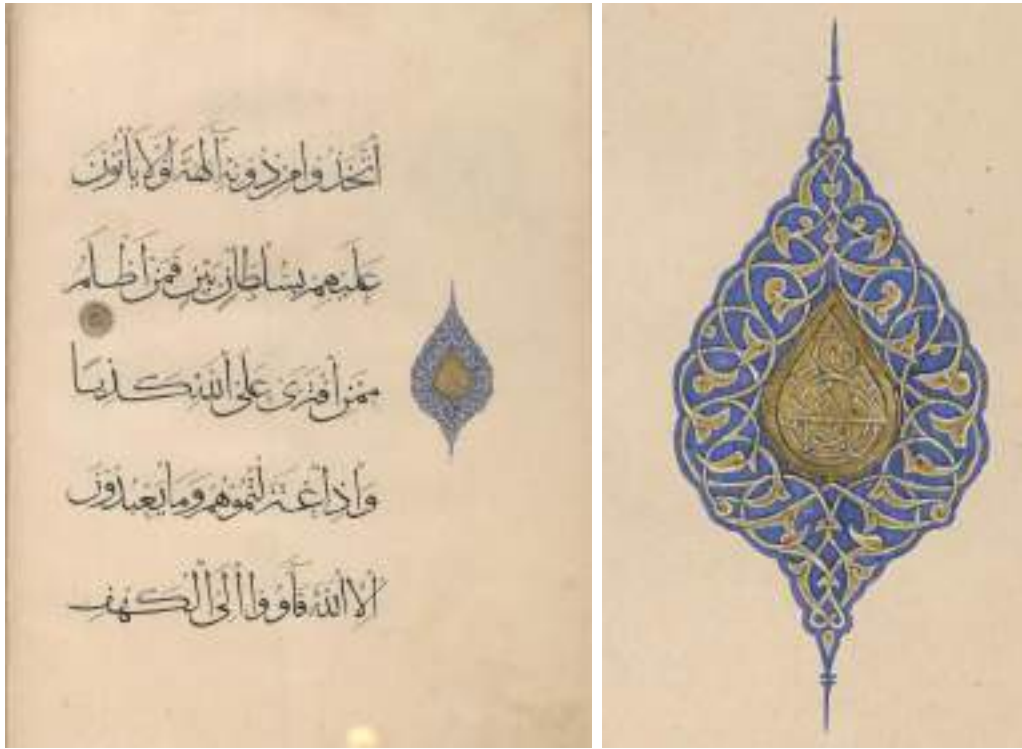 أتخذوا من دونه آلهة لولا يأتون
عليهم بسلطان بين فمن أظلم
ممن أفترى على ألله كذبا
وإذ أعتزلتموهم وما يعبدون
إلا ألله فأووا إلى ألكهف